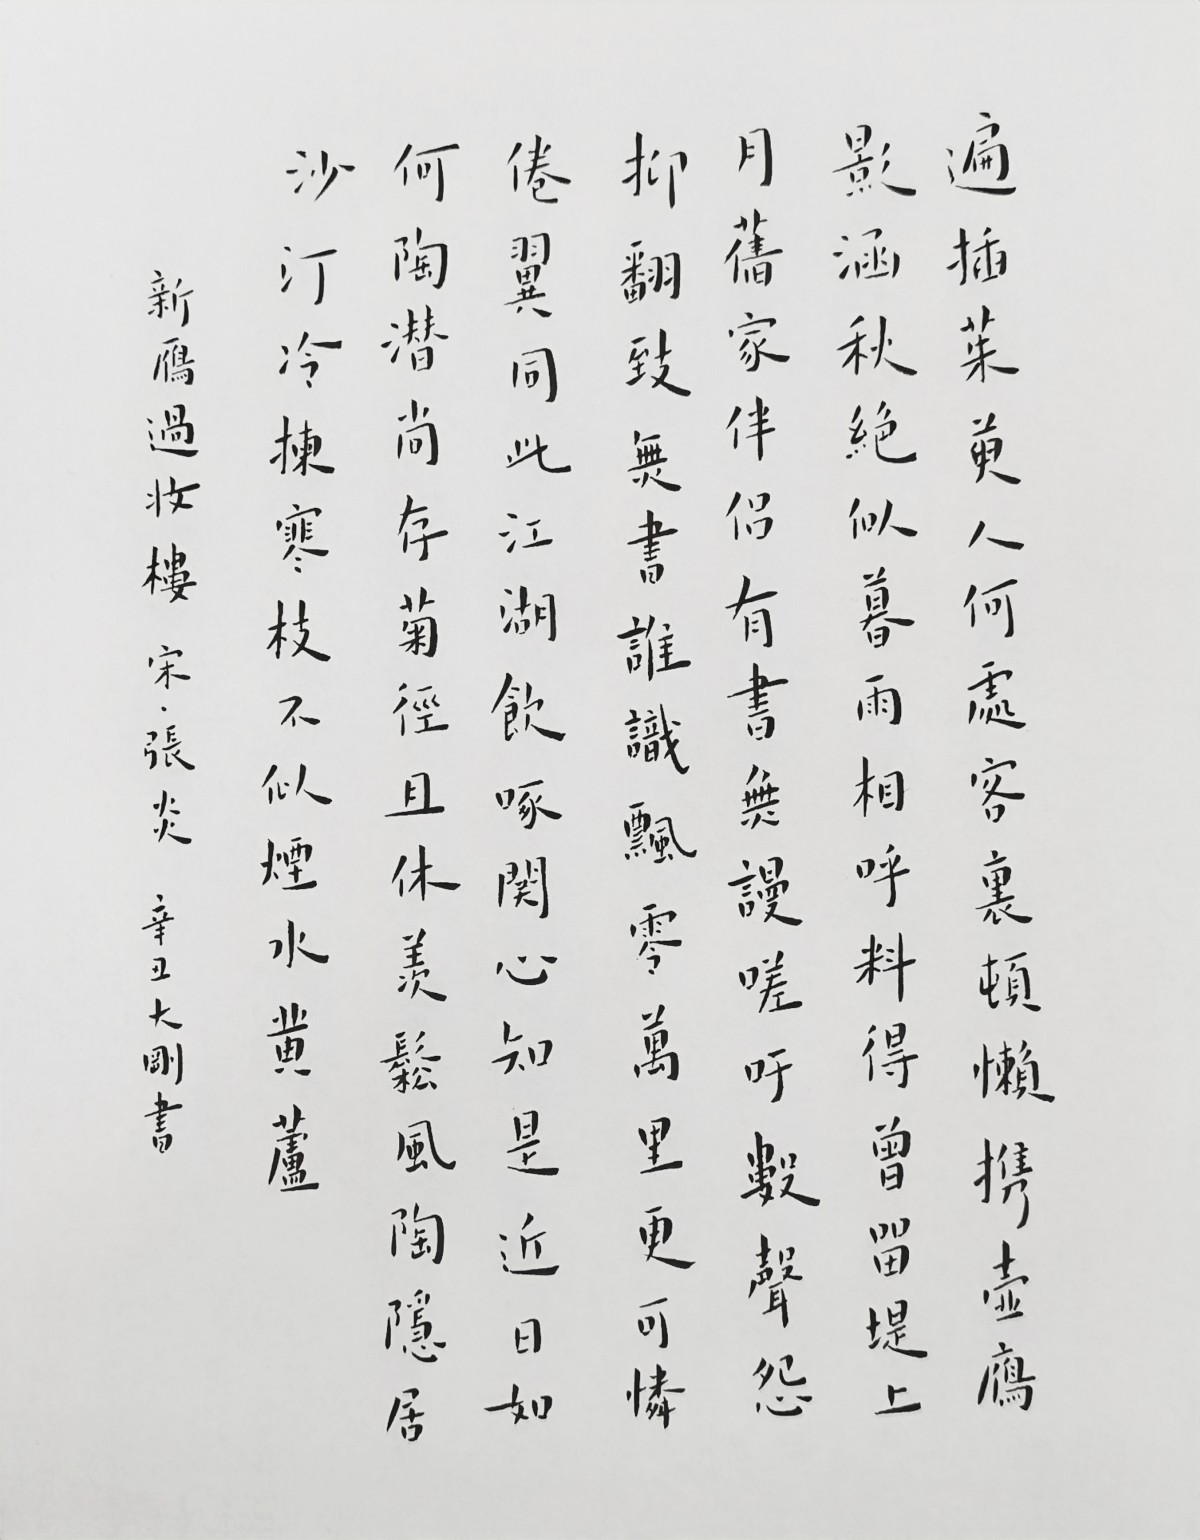 遍插茱萸人何處客裏頓懶携壺鴈
影涵秋絕似暮雨相呼料得曾留堤上
月舊家伴侶有書無謾嗟吁數聲怨
抑翻致無書誰識飄零萬里更可憐
倦翼同此江湖飲啄関心知是近日如
何陶潜尚存菊徑且休羨鬆風陶隱居
沙汀冷揀寒枝不似煙水黄蘆
新鴈過妝樓 宋·張炎 辛丑大剛書